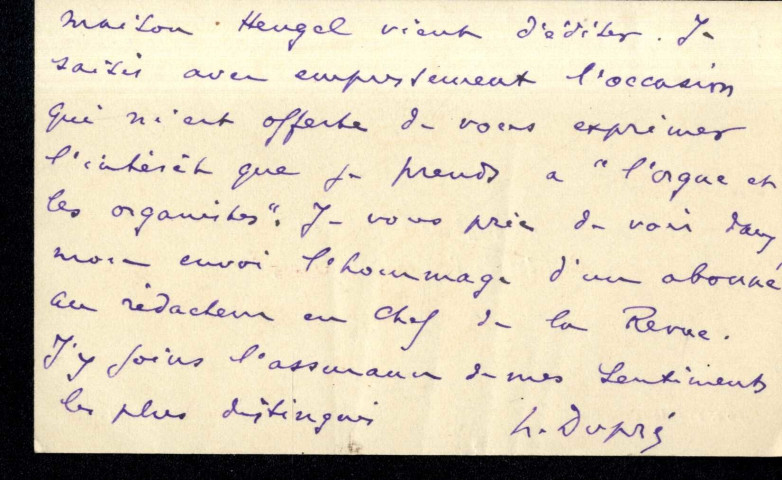 maison Heugel vient d'éditer. Je
saisis avec empressement l'occasion
qui m'est offerte de vous exprimer
l'intérêt que je prends a "l'orgue et
les organistes". Je vous prie de voir dans
mon envoi l'hommage d'un abonné
au rédacteur en Chef de la Revue.
J'y joins l'assurance de mes sentiments
les plus distingués h. Dupré